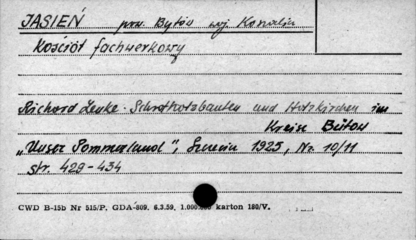 JASIEŃ pow. Bytów woj. Koszalin
Kościół fachwerkowy
Richard Zenke - Schrotholzbauten und Holzkirchen im
Kreise Bütow
„Unser Pommerland", Szczecin 1925, Nr. 10/11
str. 429-434
CWD B-15b Nr 515/P. GDA-809. 6.3.59. 1.000.000 karton 180/V.